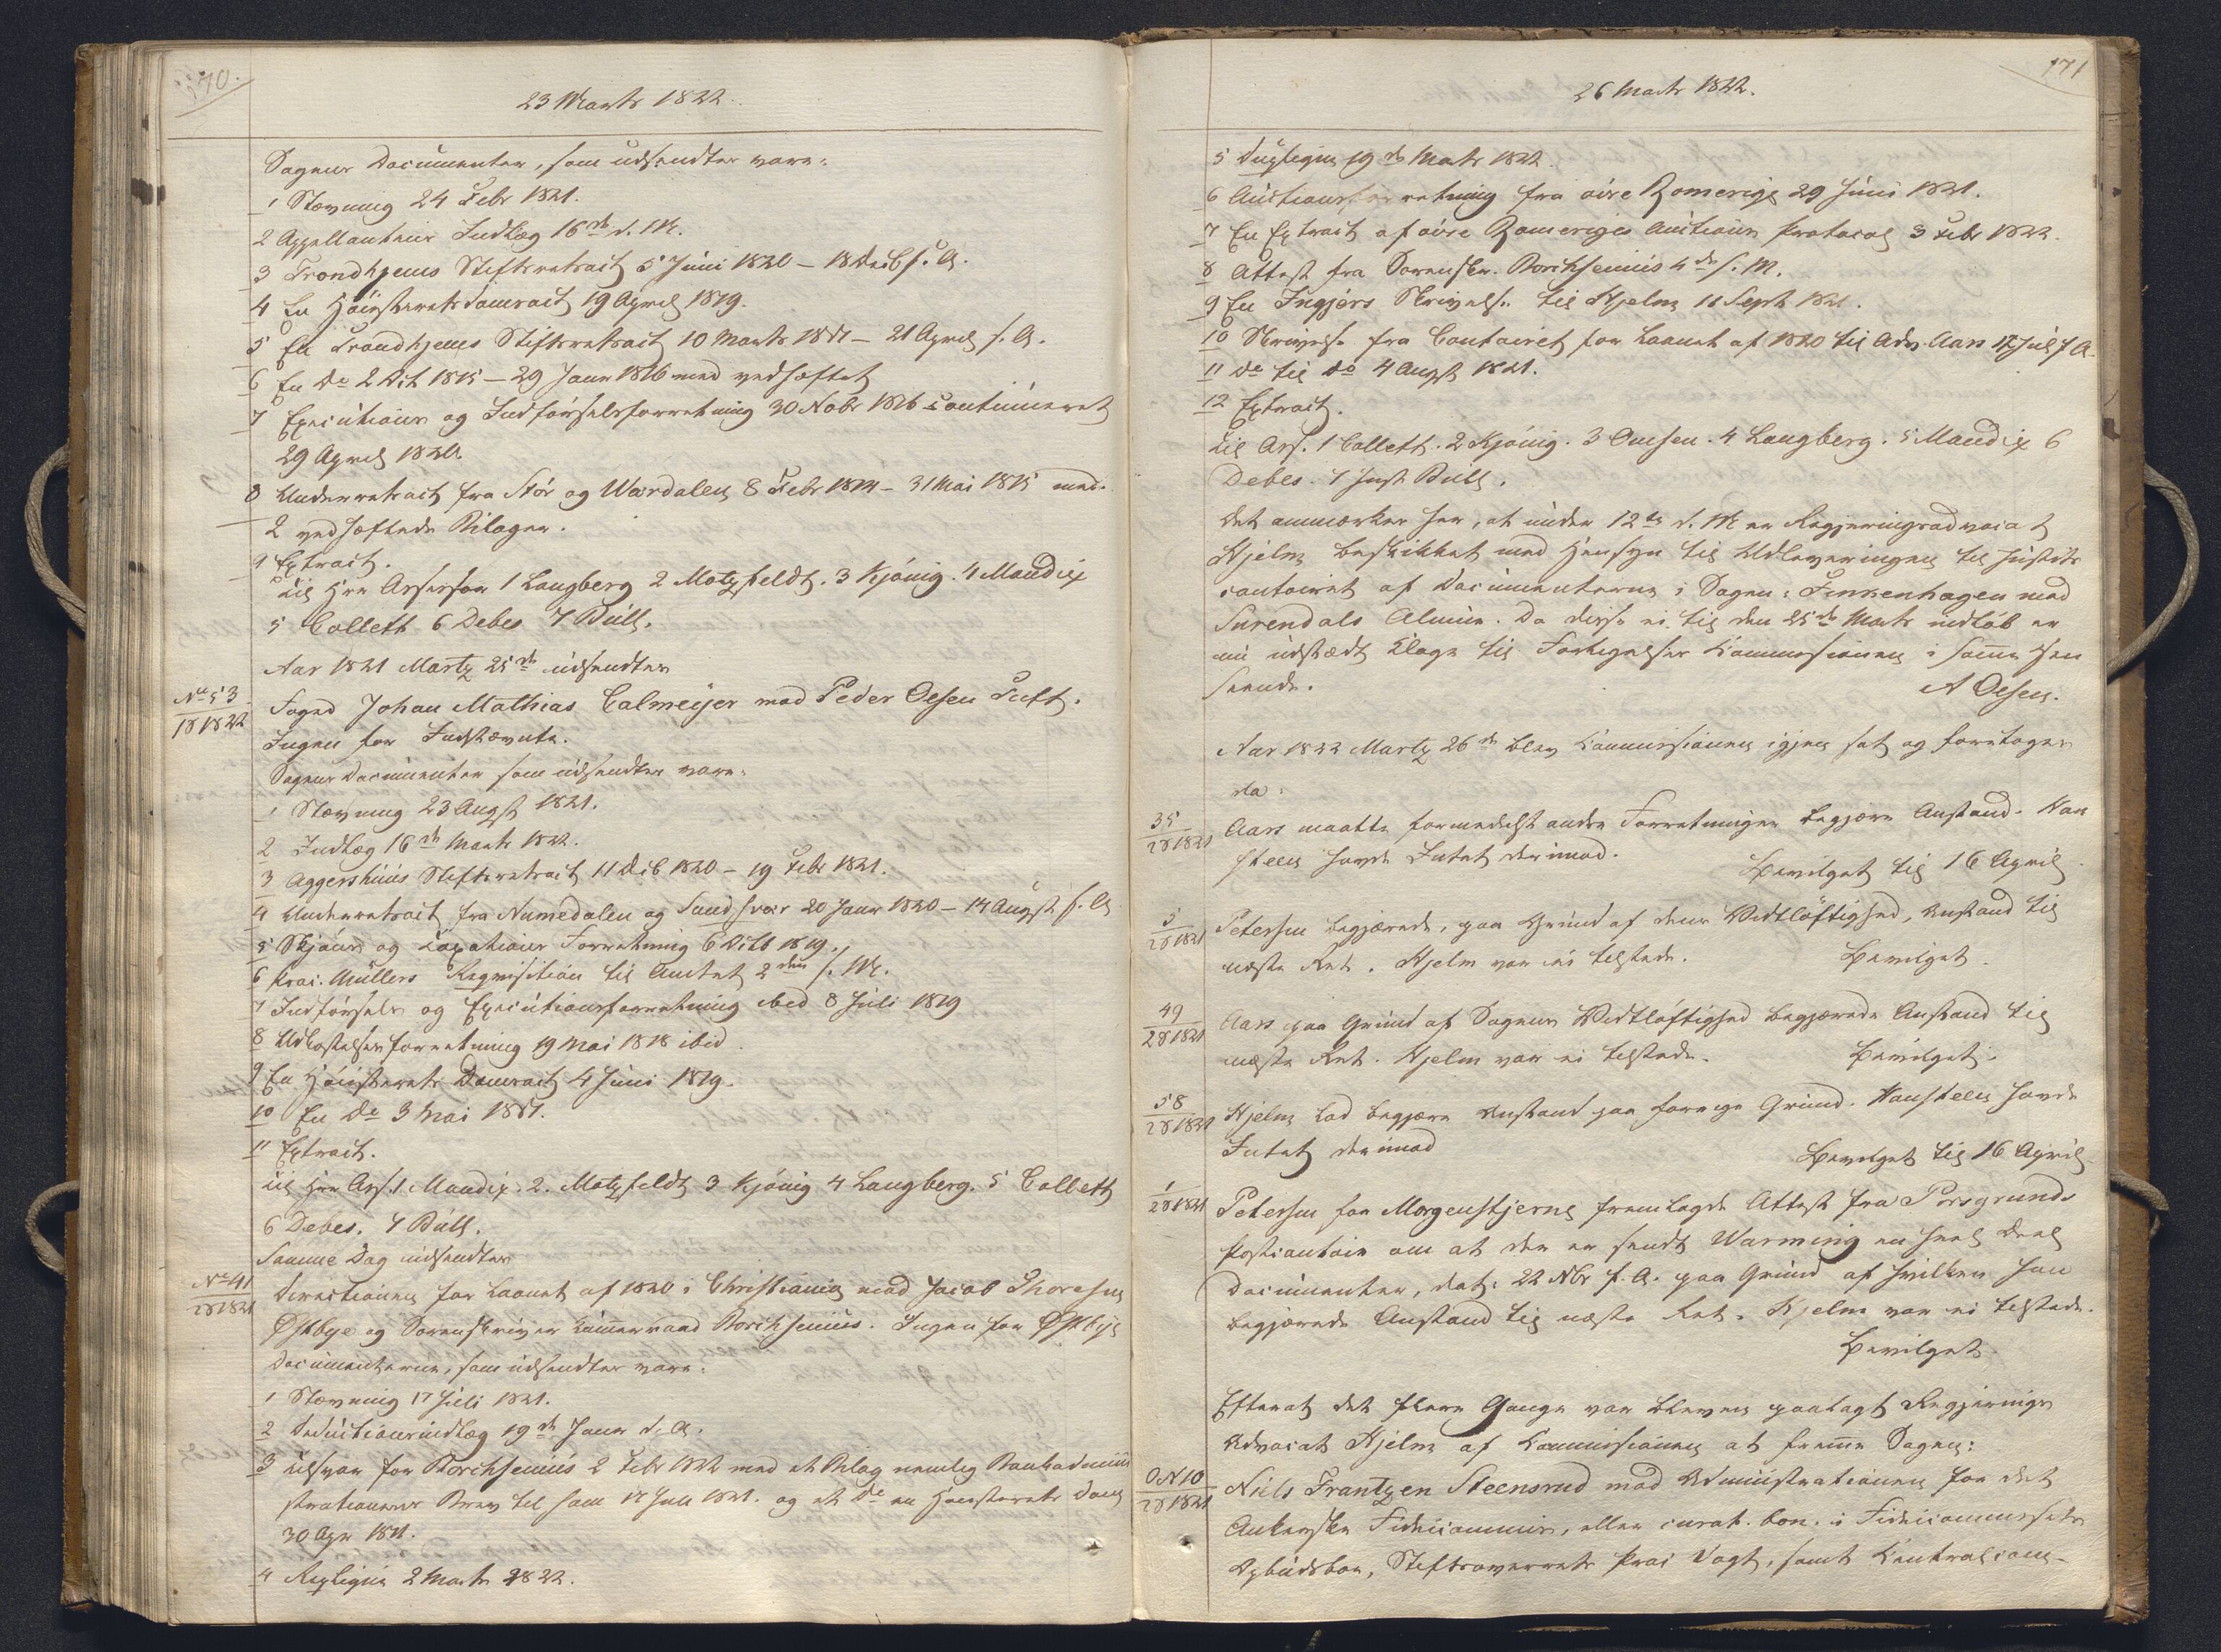 170.
23 Marts 1822.
Sagens Documenter, som udsendtes vare:
1 Stævning 24 Febr 1821.
2 Appellantens Indlæg 16de d. M.
3 Trondhjems Stiftsretsact 5 Juni 1820 – 18 Decb s. A.
4 En Höiesterets Domsact 19 April 1819.
5 En Trondhjems Stiftsretsact 10 Marts 1817 – 21 April s. A.
6 En do 2 Oct 1815 – 29 Janr 1816 med vedhæftet
7 Executions og Indförselsforretning 30 Novbr 1816 continueret
29 April 1820.
8 Underretsact fra Stör og Værdalen 8 Febr 1814 – 31 Mai 1815 med
2 vedhæftede Bilager.
9 Extract.
Til Hrr Assessor 1 Langberg 2 Motzfeldt. 3 Kjönig. 4 Mandix
5 Collett 6 Debes 7 Bull.
Aar 1821 Martz 25de udsendtes
No 53
18 1822
Foged Johan Mathias Calmeijer mod Peder Olsen Tuft.
Ingen for Indstævnte.
Sagens Documenter som udsendtes vare:
1 Stævning 23 Augst 1821.
2 Indlæg 16de Marts 1822.
3 Aggershuus Stiftsretsact 11 Decb 1820 – 19 Febr 1821.
4 Underretsact fra Numedalen og Sandsvær 20 Janr 1820 – 14 Augst s. A
5 Skjöns og Taxations Forretning 6 Octb 1819.
6 Proc. Müllers Reqvisition til Amtet 2den s. M.
7 Indförsels og Executionsforretning ibid 8 Juli 1819
8 Udkastelsesforretning 19 Mai 1818 ibid.
9 En Höiesterets Domsact 4 Juni 1819.
10 En do 3 Mai 1817.
11 Extract.
Til Hrr Ass. 1 Mandix. 2. Motzfeldt 3 Kjönig 4 Langberg. 5 Collett
6 Debes. 7 Bull.
Samme Dag udsendtes
No 41
28 1821
Directionen for Laanet af 1820 i Christiania mod Jacob Thoresen
Østbye og Sorenskriver Kammerraad Borchsenius. Ingen for Østbye
Documenterne, som udsendtes vare:
1 Stævning 17 Juli 1821.
2 Deductionsindlæg 19de Janr d. A.
3 Tilsvar for Borchsenius 2 Febr 1822 med et Bilag nemlig Bankadmini
strationens Brev til ham 12 Juli 1821. og et do en Höiesterets Dom
30 Apr 1811.
4 Repliqve 2 Marts 1822.
171
26 Marts 1822.
5 Dupliqve 19de Marts 1822.
6 Auctionsforretning fra övre Romerige 29 Juni 1821.
7 En Extract af övre Romeriges Auctions Protocol 3 Febr 1822.
8 Attest fra Sorenskr. Borchsenius 4de s. M.
9 En Ingjers Skrivelse til Hjelm 11 Septb 1821.
10 Skrivelse fra Contoiret for Laanet af 1820 til Adv. Aars 17 Juli s. A.
11 do til do 4 Augst 1821.
12 Extract.
Til Ass. 1 Collett. 2 Kjönig. 3 Omsen. 4 Langberg. 5 Mandix 6
Debes. 7 Just. Bull.
Det anmærkes her, at under 12te d. M. er Regjeringsadvocat
Hjelm beskikket med Hensyn til Udleveringen til Justits
contoiret af Documenterne i Sagen: Finkenhagen mod
Surendals Almue. Da disse ei til den 25de Marts indløb er
nu udstædt Klage til Forligelses Commissionen i samme Hen
seende.
A Olsen.
Aar 1822 Martz 26de blev Commissionen igjen sat og foretoges
da:
35
28 1821
Aars maatte formedelst andre Forretninger begjære Anstand. Han
steen havde Intet derimod.
Bevilget til 16 April
5
28 1821
Petersen begjærede, paa Grund af dens Vidtlöftighed, Anstand til
næste Ret. Hjelm var ei tilstede.
Bevilget.
49
28 1821
Aars paa Grund af Sagens Vidtlöftighed begjærede Anstand til
næste Ret. Hjelm var ei tilstede.
Bevilget.
58
28 1821
Hjelm lod begjære Anstand paa forrige Grund. Hansteen havde
Intet derimod
Bevilget til 16 April
1
28 1821
Petersen for Morgenstjerne fremlagde Attest fra Porsgrunds
Postcontoir om at der er sendt Warming en heel Deel
Documenter, dat. 22 Nbr f. A. paa Grund af hvilken han
begjærede Anstand til næste Ret. Hjelm var ei tilstede.
Bevilget.
Efterat det flere Gange var bleven paalagt Regjerings
Advocat Hjelm af Commissionen at fremme Sagen:
No 10
28 1821
Niels Frantzen Steensrud mod Administrationen for det
Ankerske Fideicommis, eller curat. bon. i Fideicommissets
Opbudsboe, Stiftsoverrets Proc Vogt, samt Centralcom-